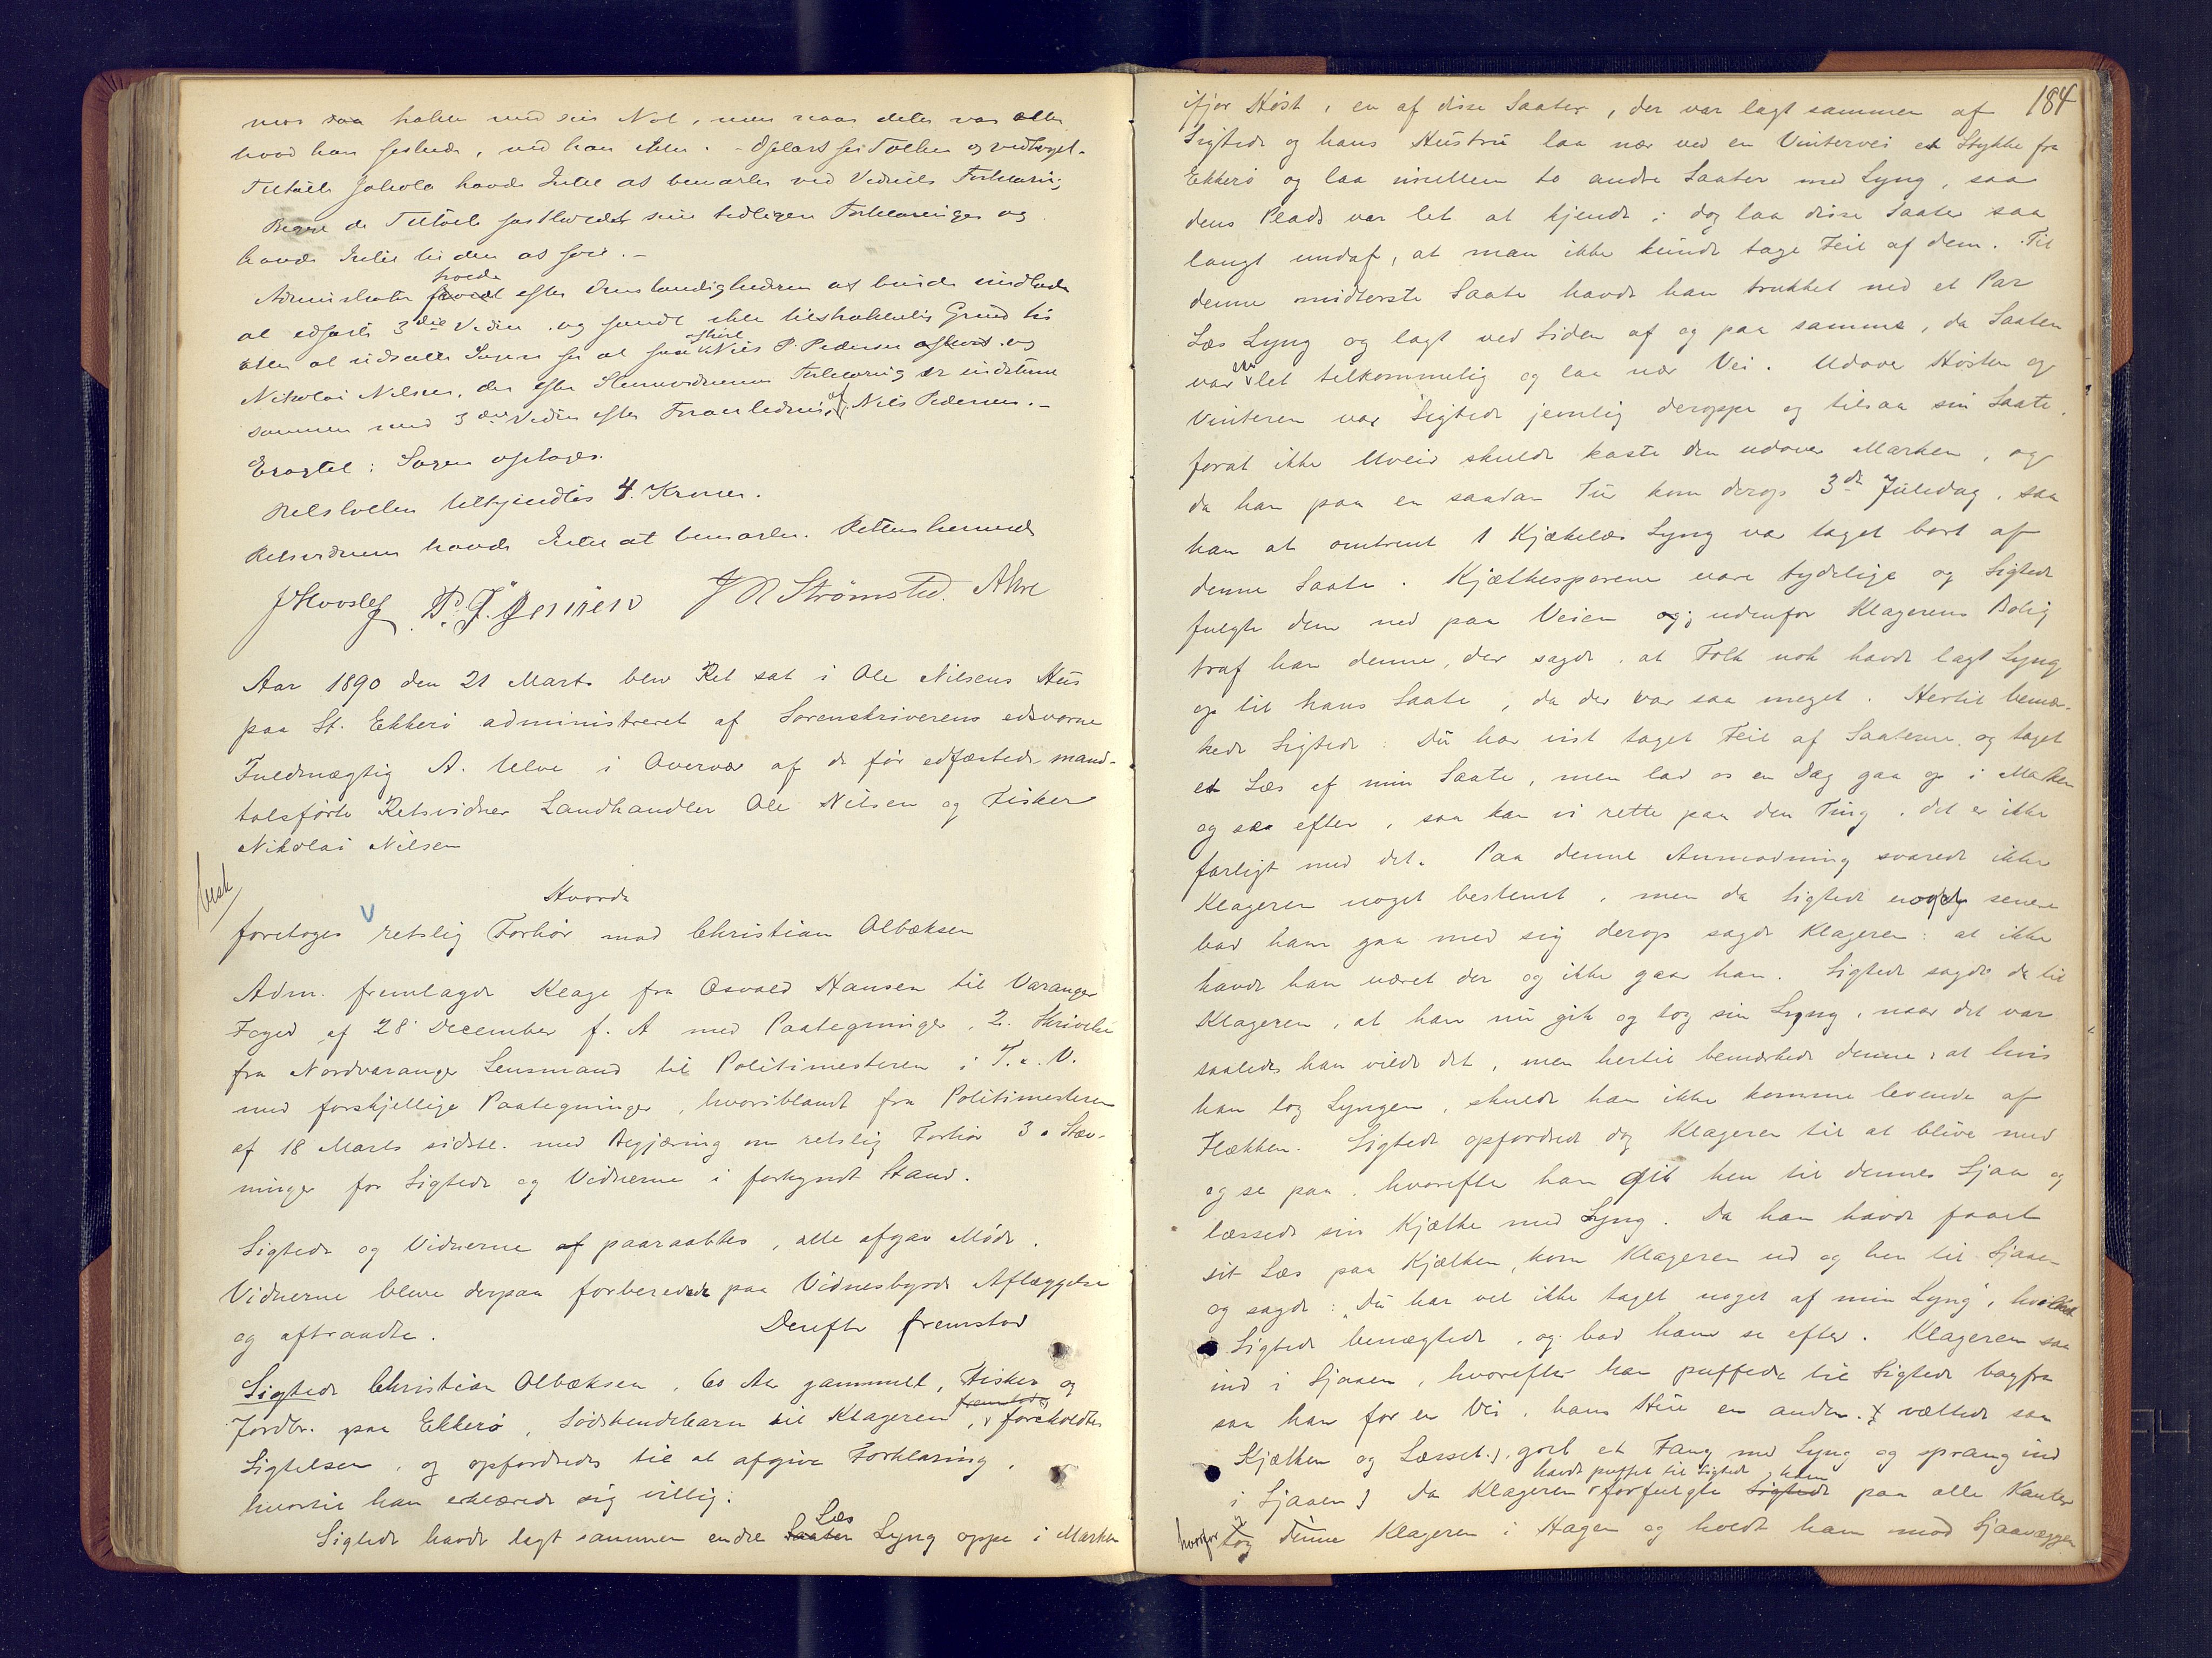 med sin Not, men naar dette var eller
hvad han, ved han ikke. Oplæst for Tolken og vedtaget.
Tiltalte Jakola havde Intet at bemærke ved Vidnets Forklaring.
Begge de Tiltalte fastholdt sine tidligere Forklaringer og
havde Intet
Administrator efter Omstændighederne at burde undlade
at edfæste 3die Vidne og fandt ikke tilstrækkelig Grund til
at udsætte Sagen for at faa Niels P. Pedersen afhørt og
Nikolai Nilsen, der efter Forklaring er
sammen med 3die Vidne efter af Nils Pedersen.
Eragtet: Sagen optages.
Retstolken tilkjendtes 4 Kroner.
Retsvidnerne havde Intet at bemærke. Retten hævet
P. J. Jensen J R Strømsted. AUlve
Aar 1890 den 21 Marts blev Ret sat i Ole Nilsens Hus
paa St. Ekkerö administreret af Sorenskriverens edsvorne
Fuldmægtig A. Ulve i Overvær af de før edfæstede mand-
talsførte Retsvidner Landhandler Ole Nilsen og Fisker
Nikolai Nilsen
Hvorda
foretoges retslig Forhør mod Christian Olbæksen
Adm. fremlagde Klage fra Osvald Hansen til Varanger
Foged af 28 December f. A med Paategninger, 2. Skrivelse
fra Nordvaranger Lensmand til Politimesteren i T. & V.
med forskjellige Paategninger, hvoriblandt fra Politimesteren
af 18 Marts sidstl. med Begjæring om retslig Forhør 3. Stæv-
ninger for Sigtede og Vidnerne i forkyndt Stand.
Sigtede og Vidnerne af paaraabtes, alle afgav Møde.
Vidnerne bleve derpaa forberedede paa Vidnesbyrds Aflæggelse
og aftraadte. Derefter fremstod
Sigtede Christian Olbæksen, 60 Aar gammel, Fisker og
Jordbr. paa Ekkerö, Södskendebarn til Klageren, foreholdtes
Sigtelsen, og opfordredes til at afgive Forklaring,
hvortil han erklærede sig villig:
Sigtede havde lagt sammen endre Læs Lyng oppe i Marken
184
ifjor Høst, en af disse Saater, der var lagt sammen af
Sigtede og hans Hustru laa nær ved en Vintervei et Stykke fra
Ekkerö og laa imellem to andre Saater med Lyng, saa
dens Plads var let at kjende; dog laa disse Saater saa
langt undaf, at man ikke kunde tage Feil af dem. Til
denne midterste Saate havde han trukket ned et Par
Læs Lyng og lagt ved Siden af og paa samme, da Saaten
var let tilkommelig og laa nær Vei. Udover Høsten og
Vinteren var Sigtede jevnlig deroppe og tilsaa sin Saate,
forat ikke Uveir skulde kaste den udover Marken, og
da han paa en saadan Tur kom derop 3de Juledag, saa
han at omtrent 1 Kjækelæs Lyng var taget bort af
denne Saate. Kjælkesporene vare tydelige og Sigtede
fulgte dem ned paa Veien og; udenfor Klagerens Bolig
traf han denne, der sagde, at Folk nok havde lagt Lyng
op til hans Saate, da der var saa meget. Hertil bemær-
kede Sigtede: Du har vist taget Feil af Saaterne og taget
et Læs af min Saate, men lad os en Dag gaa op i Marken
og saa efter, saa kan vi rette paa den Ting, det er ikke
farligt med det. Paa denne Anmodning svarede ikke
Klageren noget bestemt, men da Sigtede noget senere
bad ham gaa med sig derop sagde Klageren: at ikke
havde han været der og ikke gaar han. Sigtede sagde da til
Klageren, at han nu gik og tog sin Lyng, naar det var
saaledes han vilde det, men hertil bemærkede denne, at hvis
han tog Lyngen, skulde han ikke komme levende af
Flækken. Sigtede opfordrede dog Klageren til at blive med
og se paa, hvorefter han gik hen til dennes Sjaa og
læssede sin Kjælke med Lyng. Da han havde faaet
sit Læs paa Kjælken, kom Klageren ud og hen til Sjaaen
og sagde: "Du har vel ikke taget noget af min Lyng", hvilket
Sigtede benægtede, og bad ham se efter. Klageren saa
ind i Sjaaen, hvorefter han puffede til Sigtede bagfra
saa han for en Vei, hans Hue en anden. væltede saa
Kjælken og Læsset, greb et Fang med Lyng og sprang ind
havde puffet til Sigtede, ham
i Sjaaen) Da Klageren forfulgte Sigtede paa alle Kanter
hvorfor tog denne Klageren i Hagen og holdt ham mod Sjaavæggen